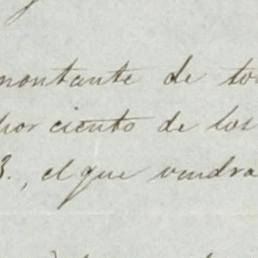 montante de to
por ciento de los
3., el que vendra